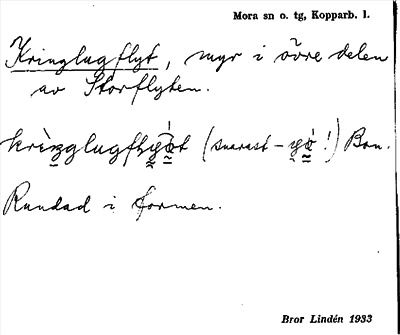 Mora sn o. tg, Kopparb. l.
Kringlugflyt, myr i övre delen
av Storflyten.
(snarast – !) Bon.
Rundad i formen.
Bror Lindén 1933